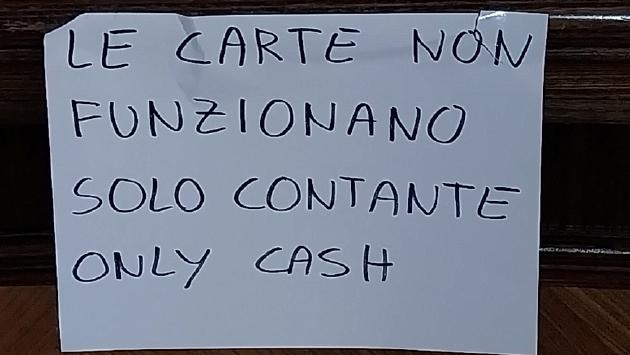 LE CARTE NON
FUNZIONANO
SOLO CONTANTE
ONLY CASH